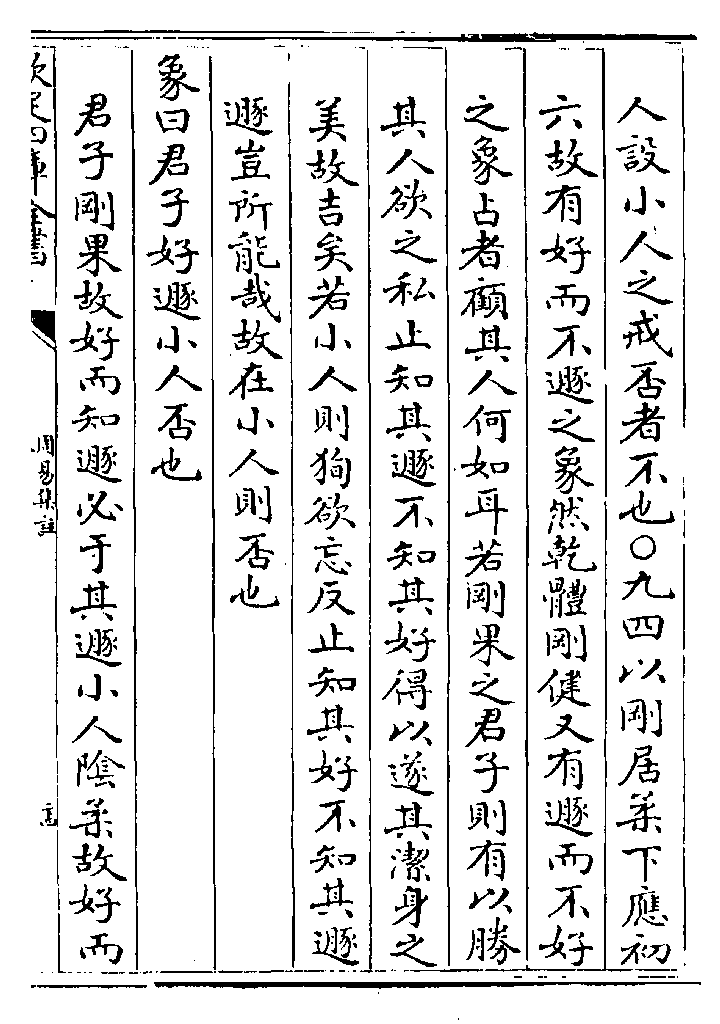 人設小人之戒否者不也〇九四以剛居柔下應初
六故有好而不遯之象然乾體剛健又有遯而不好
之象占者顧其人何如耳若剛果之君子則有以勝
其人欲之私止知其遯不知其好得以遂其潔身之
美故吉矣若小人則狥欲忘反止知其好不知其遯
遯豈所能哉故在小人則否也
象曰君子好遯小人否也
君子剛果故好而知遯必于其遯小人陰柔故好而
欽定四庫全書
周易集註